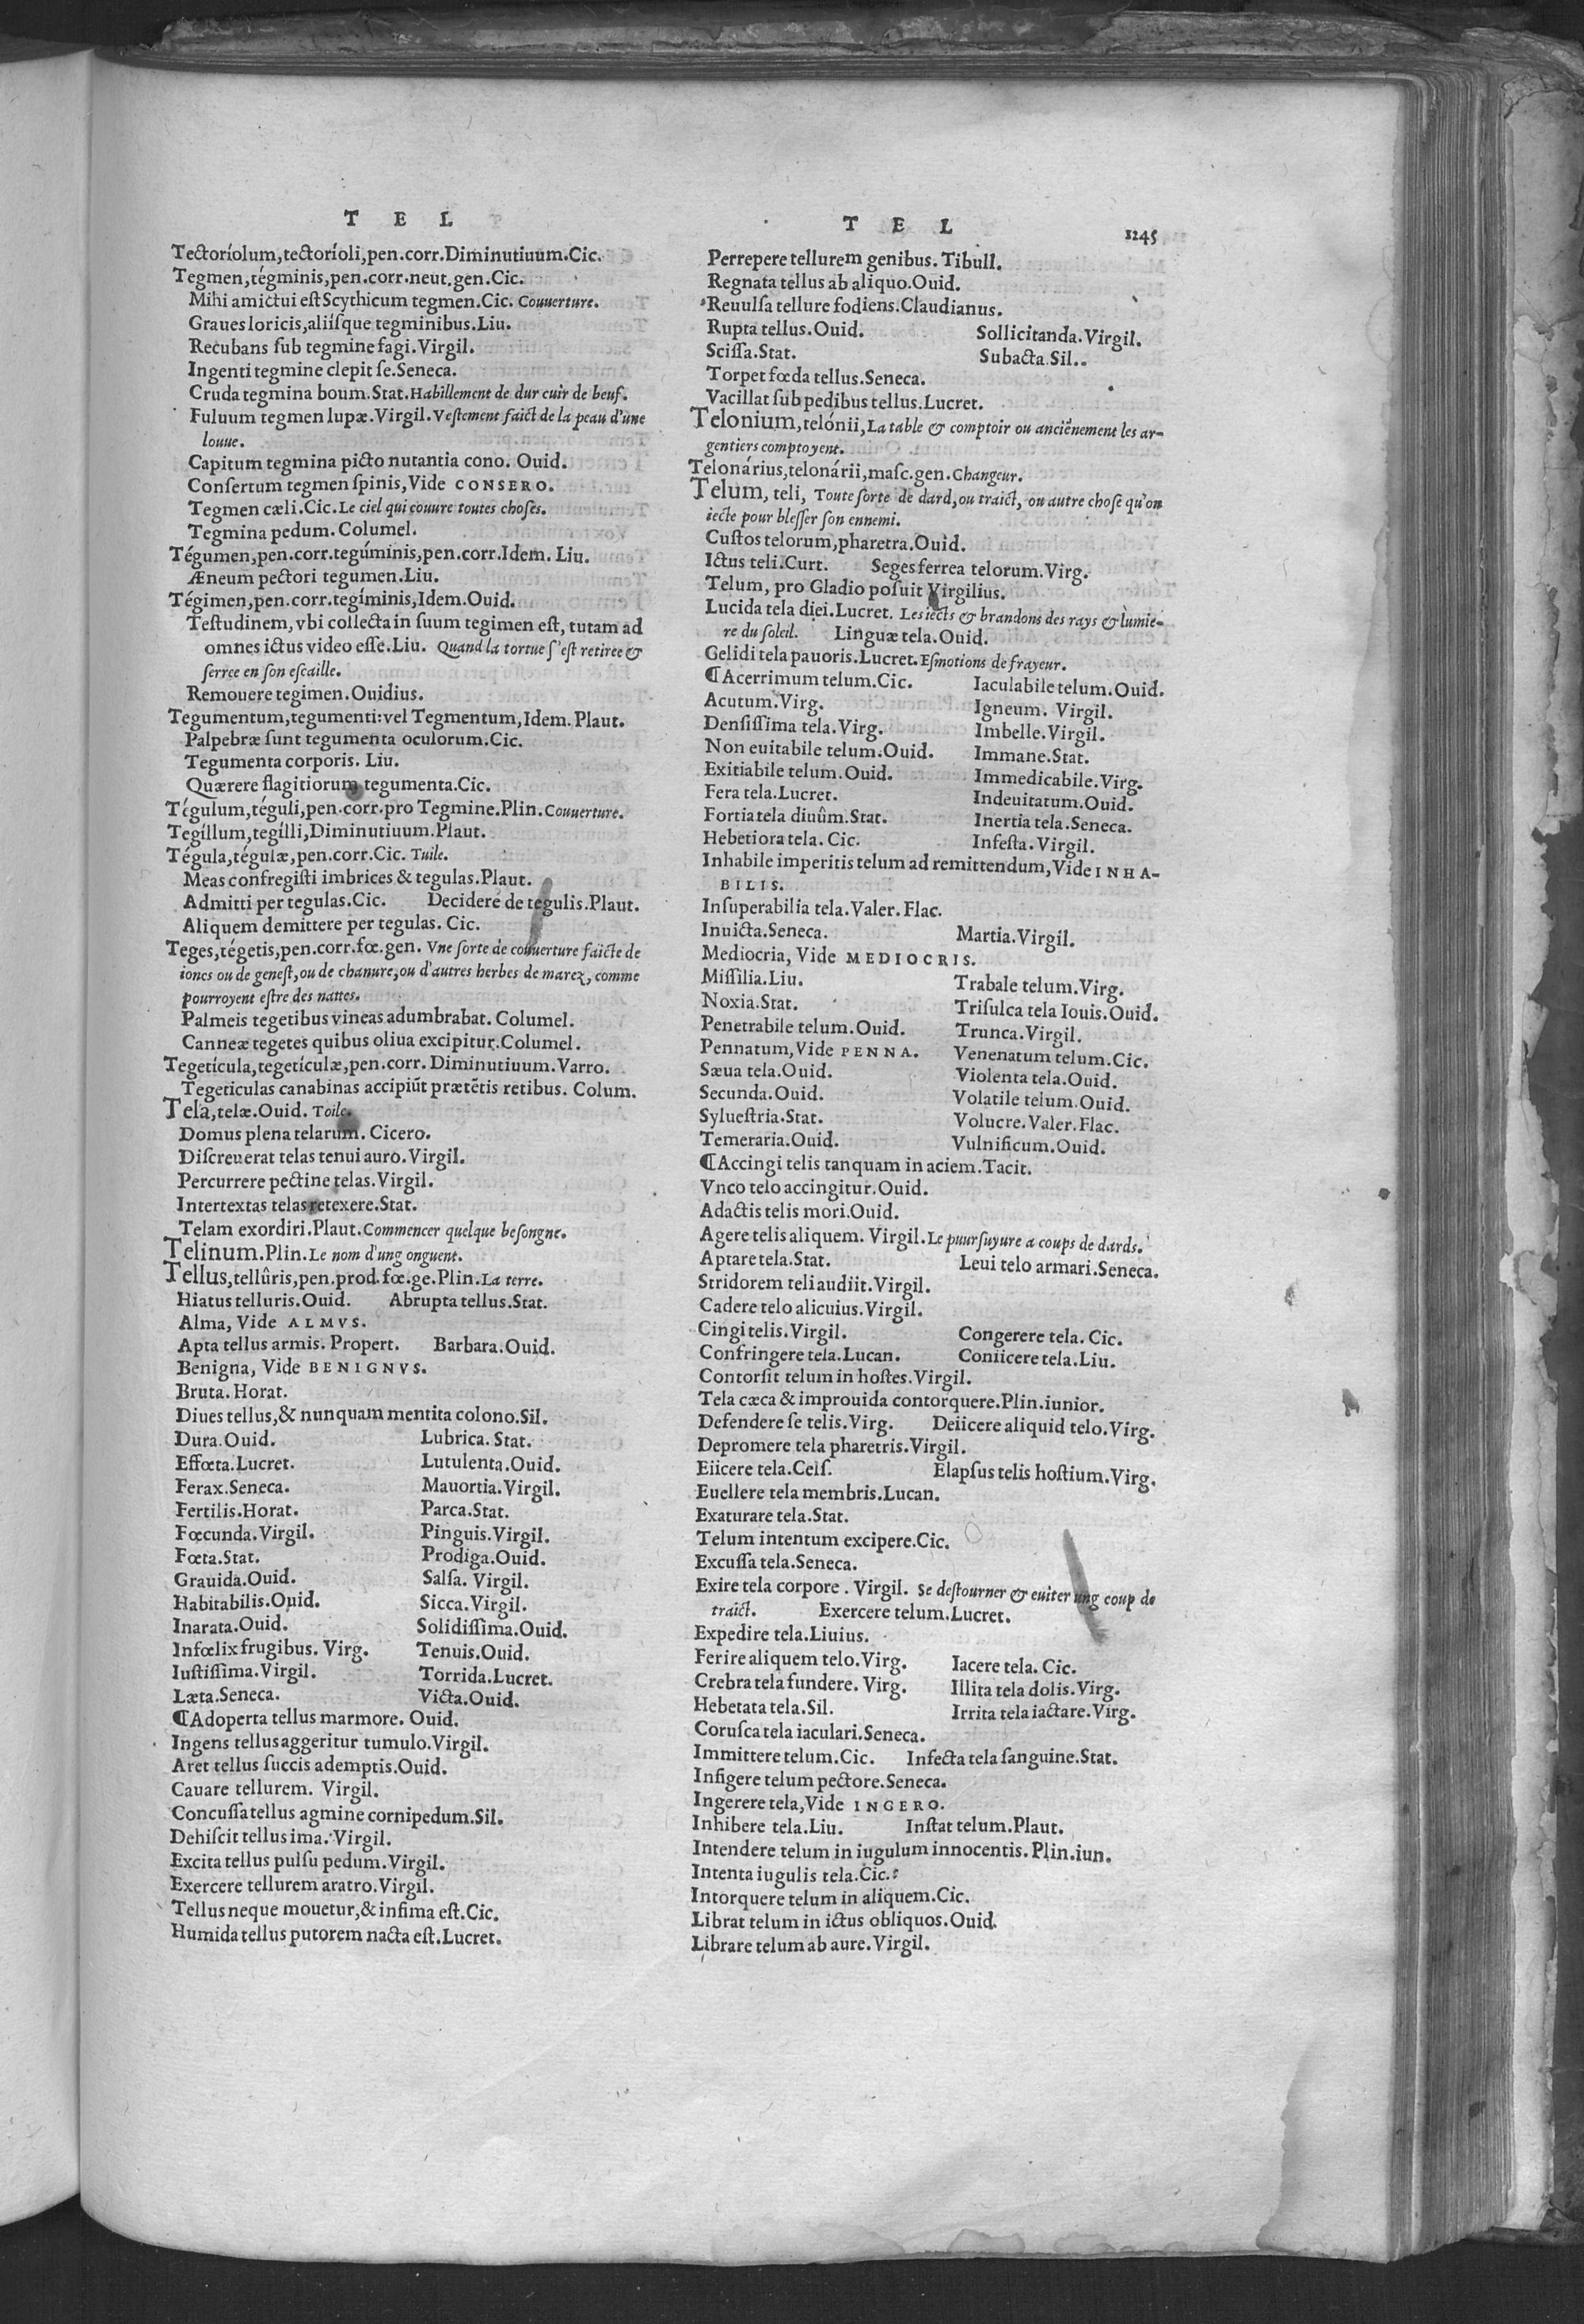 T E L
Tectoríolum,tectoríoli,pen.corr.Diminutiuum.Cic.
Tegmen,tégminis,pen.corr.neut.gen.Cic.
Mihi amictui est Scythicum tegmen.Cic. Couuerture.
Graues loricis,aliíſque tegminibus.Liu.
Recubans ſub tegmine fagi.Virgil.
Ingenti tegmine clepit ſe.Seneca.
Cruda tegmina boum.Stat.Habillement de dur cuir de beuf.
Fuluum tegmen lupæ.Virgil.Veſtement faict de la peau d'une
louue.
Capitum tegmina picto nutantia cono. Ouid.
Conſertum tegmen ſpinis,Vide CONSERO.
Tegmen cæli.Cic.Le ciel qui couure toutes choſes.
Tegmina pedum.Columel.
Tégumen,pen.corr.tegúminis,pen.corr.Idem. Liu.
Æneum pectori tegumen.Liu.
Tégimen,pen.corr.tegíminis,Idem.Ouid.
Teſtudinem,vbi collecta in ſuum tegimen eſt, tutam ad
omnes ictus video eſſe.Liu. Quand la tortue ſ'eſt retiree &
ſerree en ſon eſcaille.
Remouere tegimen.Ouidius.
Tegumentum,tegumenti:vel Tegmentum,Idem.Plaut.
Palpebræ ſunt tegumenta oculorum.Cic.
Tegumenta corporis. Liu.
Quærere flagitiorum tegumenta.Cic.
Tégulum,téguli,pen.corr.pro Tegmine.Plin.Couuerture.
Tegíllum,tegílli,Diminutiuum.Plaut.
Tégula,tégulæ,pen.corr.Cic. Tuile.
Meas confregiſti imbrices & tegulas.Plaut.
Admitti per tegulas.Cic. Decidere de tegulis.Plaut.
Aliquem demittere per tegulas. Cic.
Teges,tégetis,pen.corr.fœ.gen. Vne ſorte de couuerture faicte de
ioncs ou de geneſt,ou de chanure,ou d'autres herbes de marez, comme
pourroyent eſtre des nattes.
Palmeis tegetibus vineas adumbrabat. Columel.
Canneæ tegetes quibus oliua excipitur.Columel.
Tegetícula,tegetículæ,pen.corr. Diminutiuum.Varro.
Tegeticulas canabinas accipiũt prætẽtis retibus. Colum.
Tela,telæ.Ouid. Toile.
Domus plena telarum. Cicero.
Diſcreuerat telas tenui auro.Virgil.
Percurrere pectine telas.Virgil.
Intertextas telas retexere.Stat.
Telam exordiri.Plaut.Commencer quelque beſongne.
Telinum.Plin.Le nom d'ung onguent.
Tellus,tellûris,pen.prod.fœ.ge.Plin.La terre.
Hiatus telluris.Ouid. Abrupta tellus.Stat.
Alma, Vide ALMVS.
Apta tellus armis. Propert. Barbara.Ouid.
Benigna, Vide BENIGNVS.
Bruta. Horat.
Diues tellus,& nunquam mentita colono.Sil.
Dura.Ouid. Lubrica. Stat.
Effœta.Lucret. Lutulenta.Ouid.
Ferax.Seneca. Mauortia.Virgil.
Fertilis.Horat. Parca.Stat.
Fœcunda.Virgil. Pinguis.Virgil.
Fœta.Stat. Prodiga.Ouid.
Grauida.Ouid. Salſa. Virgil.
Habitabilis.Ouid. Sicca.Virgil.
Inarata.Ouid. Solidiſſima.Ouid.
Infœlix frugibus. Virg. Tenuis.Ouid.
Iuſtiſſima.Virgil. Torrida.Lucret.
Læta.Seneca. Victa.Ouid.
¶Adoperta tellus marmore. Ouid.
Ingens tellus aggeritur tumulo.Virgil.
Aret tellus ſuccis ademptis.Ouid.
Cauare tellurem. Virgil.
Concuſſa tellus agmine cornipedum.Sil.
Dehiſcit tellus ima.Virgil.
Excita tellus pulſu pedum.Virgil.
Exercere tellurem aratro.Virgil.
Tellus neque mouetur,& infima eſt.Cic.
Humida tellus putorem nacta eſt.Lucret.
T E L 1245
Perrepere tellurem genibus. Tibull.
Regnata tellus ab aliquo.Ouid.
Reuulſa tellure fodiens.Claudianus.
Rupta tellus.Ouid. Sollicitanda.Virgil.
Sciſſa.Stat. Subacta.Sil..
Torpet fœda tellus.Seneca.
Vacillat ſub pedibus tellus.Lucret.
Telonium,telónii,La table & comptoir ou anciẽnement les ar-
gentiers comptoyent.
Telonárius,telonárii,maſc.gen.Changeur.
Telum, teli, Toute ſorte de dard,ou traict, ou autre choſe qu'on
iecte pour bleſſer ſon ennemi.
Cuſtos telorum,pharetra.Ouid.
Ictus teli.Curt. Seges ferrea telorum.Virg.
Telum, pro Gladio poſuit Virgilius.
Lucida tela diei.Lucret. Les iects & brandons des rays & lumie-
re du ſoleil. Linguæ tela.Ouid.
Gelidi tela pauoris.Lucret.Eſmotions de frayeur.
¶Acerrimum telum.Cic. Iaculabile telum.Ouid.
Acutum.Virg. Igneum. Virgil.
Denſiſſima tela.Virg. Imbelle.Virgil.
Non euitabile telum.Ouid. Immane.Stat.
Exitiabile telum.Ouid. Immedicabile.Virg.
Fera tela.Lucret. Indeuitatum.Ouid.
Fortia tela diuûm.Stat. Inertia tela.Seneca.
Hebetiora tela. Cic. Infeſta.Virgil.
Inhabile imperitis telum ad remittendum,Vide INHA-
BILIS.
Inſuperabilia tela.Valer. Flac.
Inuicta.Seneca. Martia.Virgil.
Mediocria, Vide MEDIOCRIS.
Miſſilia.Liu. Trabale telum.Virg.
Noxia.Stat. Triſulca tela Iouis.Ouid.
Penetrabile telum.Ouid. Trunca.Virgil.
Pennatum,Vide PENNA. Venenatum telum.Cic.
Sæua tela.Ouid. Violenta tela.Ouid.
Secunda.Ouid. Volatile telum.Ouid.
Sylueſtria.Stat. Volucre.Valer.Flac.
Temeraria.Ouid. Vulnificum.Ouid.
¶Accingi telis tanquam in aciem.Tacit.
Vnco telo accingitur.Ouid.
Adactis telis mori.Ouid.
Agere telis aliquem. Virgil.Le puurſuyure a coups de dards.
Aptare tela.Stat. Leui telo armari.Seneca.
Stridorem teli audiit.Virgil.
Cadere telo alicuius.Virgil.
Cingi telis.Virgil. Congerere tela. Cic.
Confringere tela.Lucan. Coniicere tela.Liu.
Contorſit telum in hoſtes.Virgil.
Tela cæca & improuida contorquere.Plin.iunior.
Defendere ſe telis.Virg. Deiicere aliquid telo.Virg.
Depromere tela pharetris.Virgil.
Eiicere tela.Celſ. Elapſus telis hoſtium.Virg.
Euellere tela membris.Lucan.
Exaturare tela.Stat.
Telum intentum excipere.Cic.
Excuſſa tela.Seneca.
Exire tela corpore . Virgil. Se deſtourner & euiter ung coup de
traict. Exercere telum.Lucret.
Expedire tela.Liuius.
Ferire aliquem telo.Virg. Iacere tela. Cic.
Crebra tela fundere. Virg. Illita tela dolis.Virg.
Hebetata tela.Sil. Irrita tela iactare.Virg.
Coruſca tela iaculari.Seneca.
Immittere telum.Cic. Infecta tela ſanguine.Stat.
Infigere telum pectore.Seneca.
Ingerere tela,Vide INGERO.
Inhibere tela.Liu. Inſtat telum.Plaut.
Intendere telum in iugulum innocentis.Plin.iun.
Intenta iugulis tela.Cic.
Intorquere telum in aliquem.Cic.
Librat telum in ictus obliquos.Ouid.
Librare telum ab aure.Virgil.